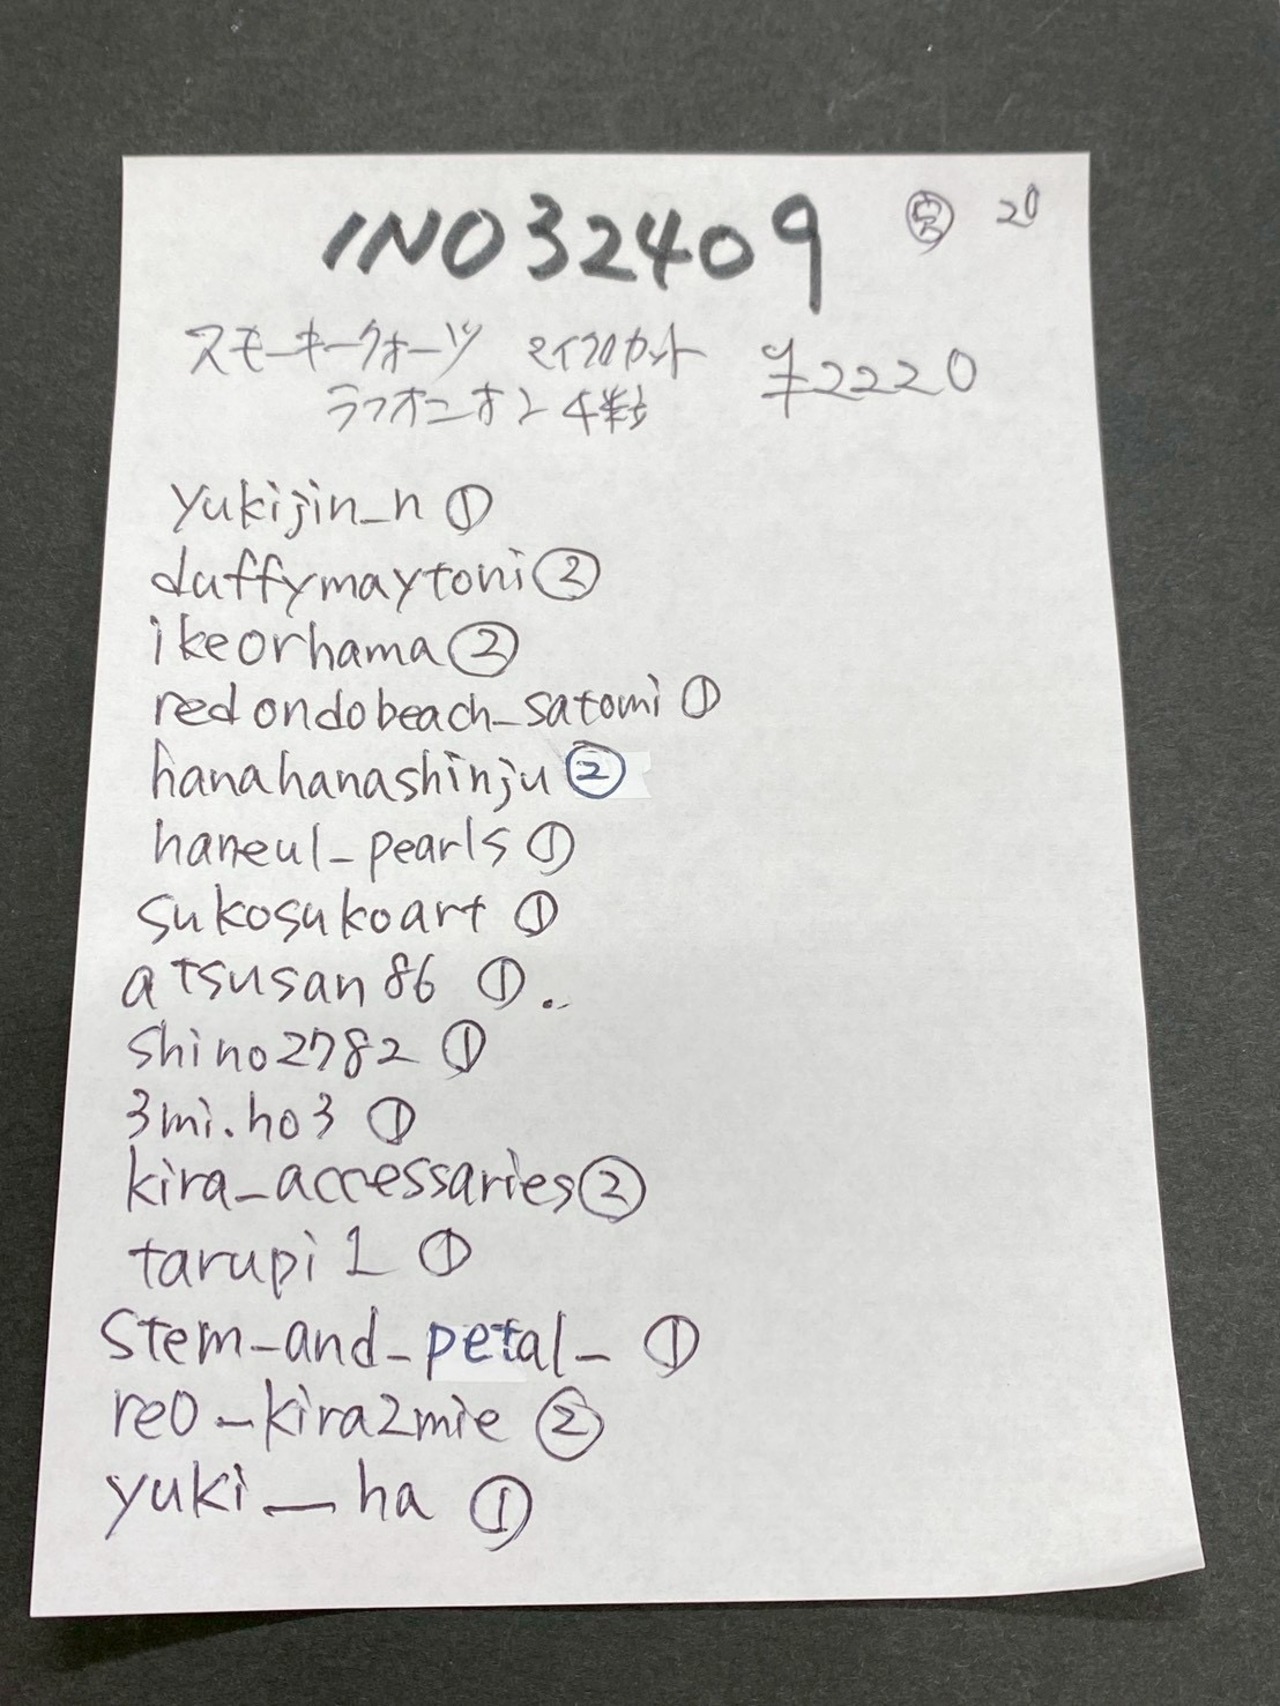 INO32409 20
スモーキークォーツ マイクロカット ¥2220
ラフオニオン 4粒
yukijin_n ①
duffymaytoni ②
ikeorhama ②
redondobeach_satomi ①
hanahanashinju ②
haneul_pearls ①
sukosukoart ①
atsusan86 ①..
shino2782 ①
3mi.ho3 ①
kira_accessaries ②
tarupi1 ①
stem_and_petal_ ①
re0_kira2mie ②
yuki__ha ①